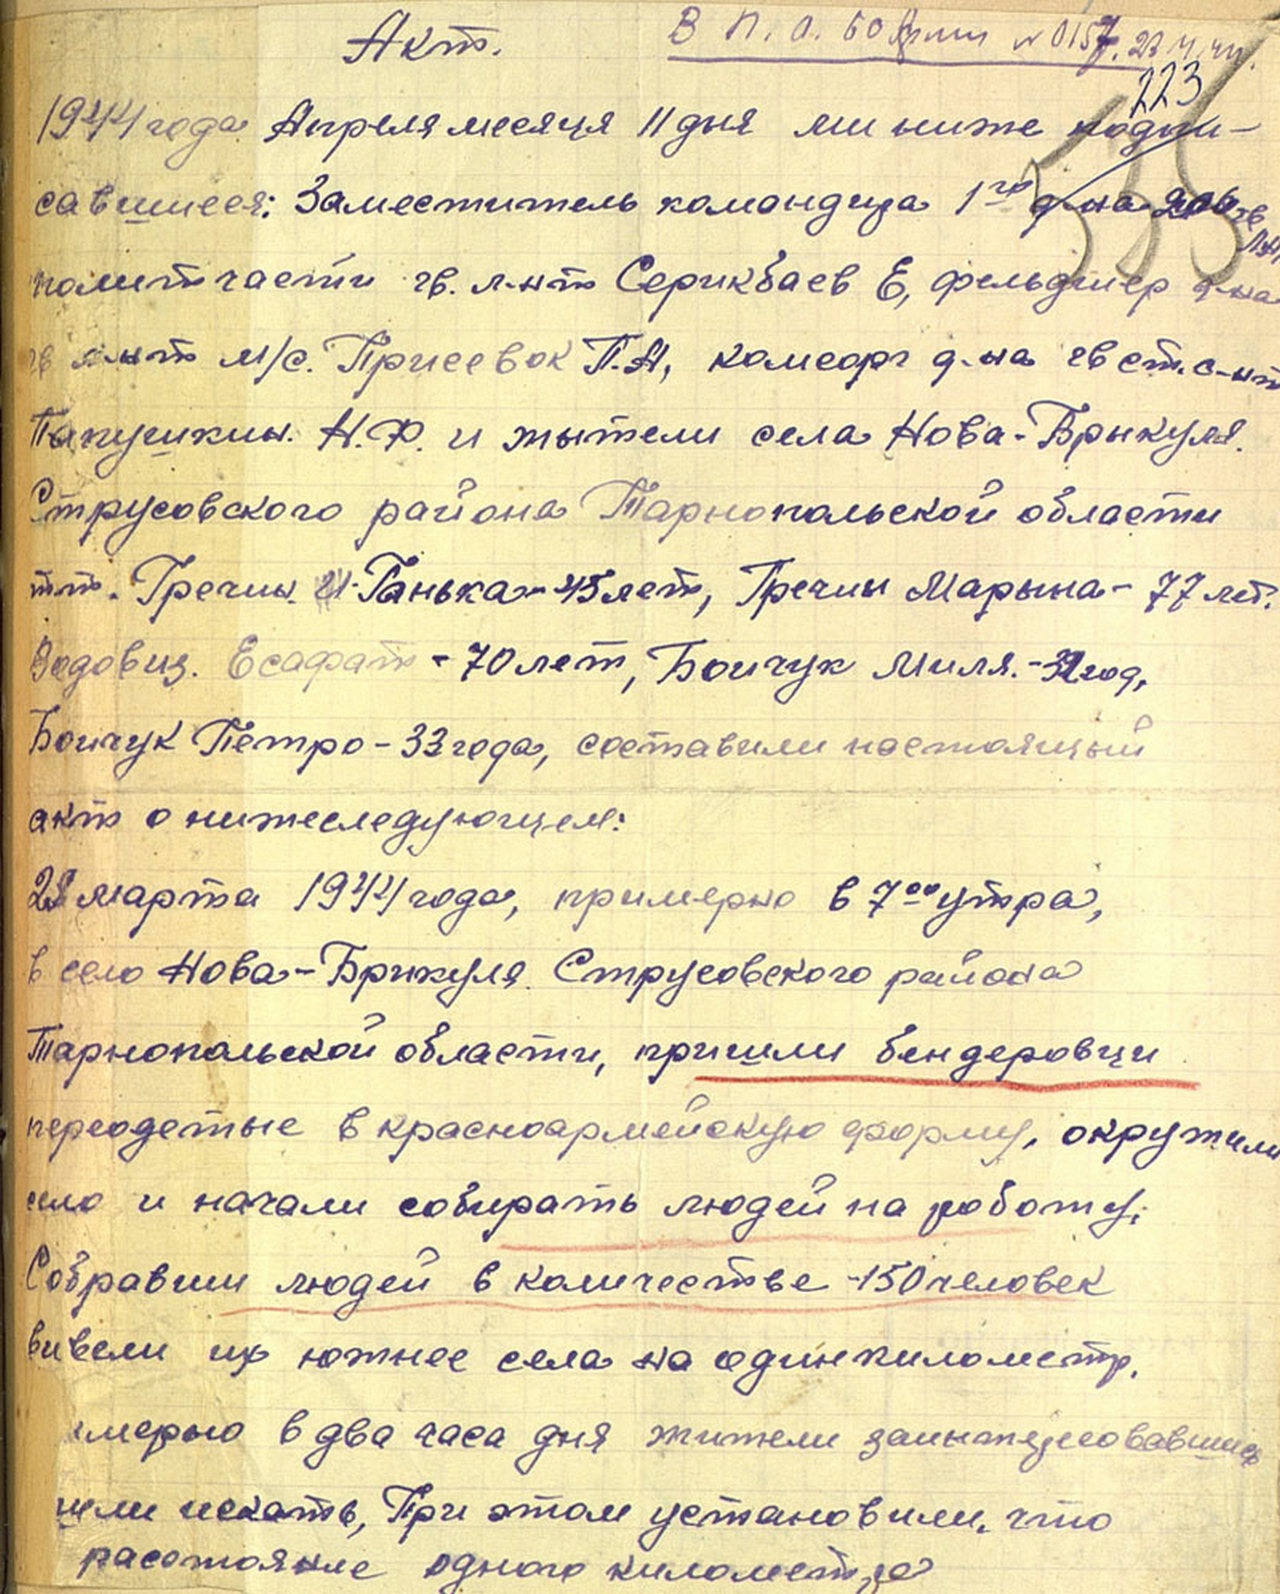 Акт.
В П.О. 60 Армии № 0157. 23.4.44.
223
535
1944 года Апреля месяца 11 дня ми ниже подпи-
савшиеся: Заместитель командира 1го д-на
политчасти гв. л-нт Серикбаев Е, фельдшер д-на
гв л-нт м/с. Присевок П.А, комсорг д-на гв ст. с-нт
Папушкин. Н.Ф. и жытели села Нова-Брыкуля.
Струсовского района Тарнопольской области
тт. Гречин. Ганька - 45 лет, Гречин Марына - 77 лет.
Водовиз. Есафат - 70 лет, Бойчук Миля. - 32 год,
Бойчук Петро - 33 года, составили настоящый
акт о нижеследующем:
28 марта 1944 года, примерно в 7 00 утра,
в село Нова-Брикуля Струсовского района
Тарнопольской области, пришли бендеровци
переодетые в красноармейскую форму, окружили
село и начали собирать людей на роботу.
Собравши людей в количестве - 150 человек
вивели их южнее села на один километр.
имерно в два часа дня жители заинтересовавшись
шли искать, При этом установили, что
расстояние одного километра